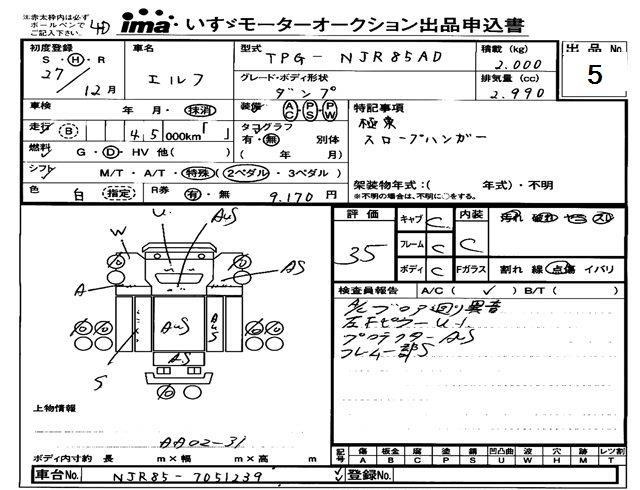 注:赤太枠内は必ずボールペンでご記入下さい。 4D ima いすゞモーターオークション出品申込書
初度登録 S・H・R 27/12月
車名 エルフ
型式 TPG-NJR85AD
グレード・ボディ形状 ダンプ
積載(kg) 2.000
排気量(cc) 2.990
出品No 5
車検 年・月・抹消
装備 AC・PS・PW
走行 B 45 000km「 」
タコグラフ 有・無 別体 ( 年 月)
燃料 G・D・HV 他( )
シフト M/T・A/T・特殊(2ペダル・3ペダル)
色 白 指定
R券 有・無 9.170円
特記事項
極東
スロープハンガー
架装物年式:( 年式)・不明
※不明の場合は、不明に○をする。
評価 35
キャブ C
フレーム C
ボディ C
内装 C 汚れ 破れ
Fガラス 割れ 線 点傷 イバリ
検査員報告 A/C( ✓ ) B/T( )
A/Cブロア回り異音
左FピラーU1
プロテクターAS
フレーム一部S
W U. AuS
AS
A
AuS AuS
AS
S
上物情報
AA02-31
ボディ内寸約 長 m×幅 m×高 m
記号 傷A 板金B 腐C 塗P 錆S 凹凸曲U 波W 穴H 跡M レツ割T
車台No. NJR85-7051239
登録No.